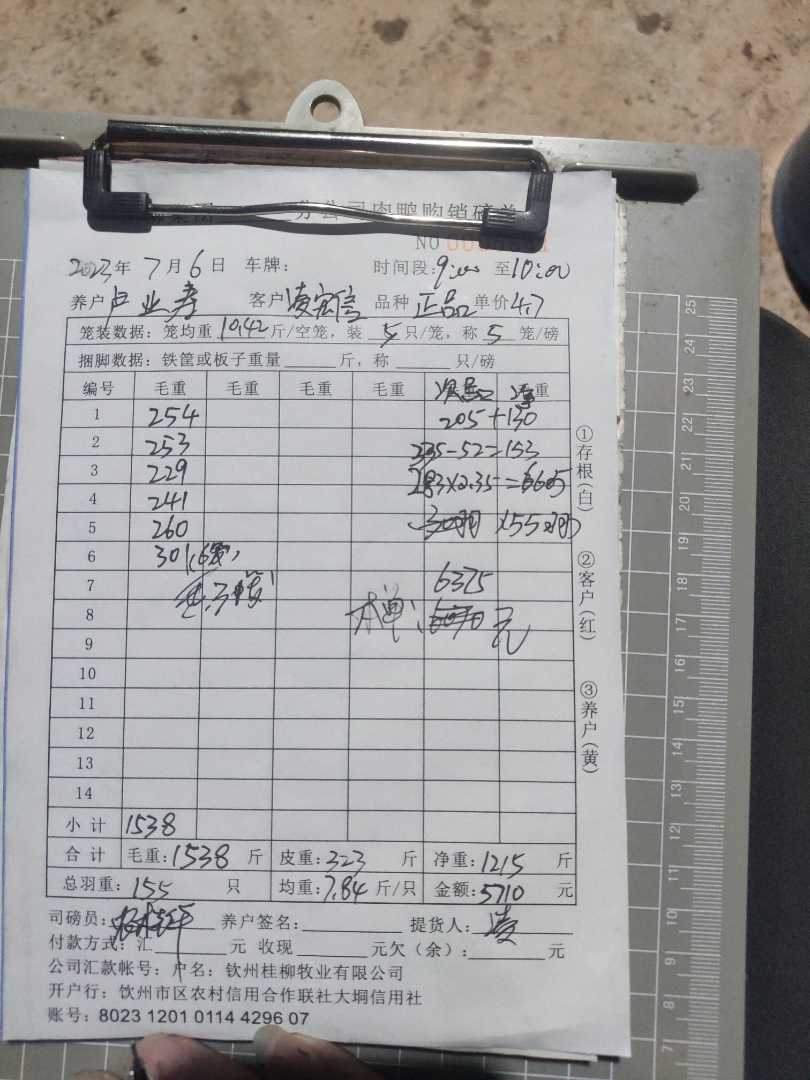 分公司肉鸭购销磅单
NO
2023年 7月6日 车牌: 时间段:9:00 至10:00
养户 卢业寿 客户 凌宏信 品种 正品 单价4.7
笼装数据: 笼均重 10.42 斤/空笼, 装 5 只/笼, 称 5 笼/磅
捆脚数据: 铁筐或板子重量 斤, 称 只/磅
编号 毛重 毛重 毛重 毛重 重
1 254 205+130
2 253 335-52=153
3 229 283×2.35=665
4 241
5 260
6 301
7 6375
8 本单: 元
9
10
11
12
13
14
小计 1538
合计 毛重:1538 斤 皮重:323 斤 净重:1215 斤
总羽重: 155 只 均重:7.84 斤/只 金额:5710 元
司磅员: 养户签名: 提货人: 凌
付款方式: 汇 元 收现 元欠(余): 元
公司汇款帐号: 户名: 钦州桂柳牧业有限公司
开户行: 钦州市区农村信用合作联社大垌信用社
账号: 8023 1201 0114 4296 07
①存根(白)
②客户(红)
③养户(黄)
25
24
23
22
21
20
19
18
17
16
15
14
13
12
11
10
9
8
7